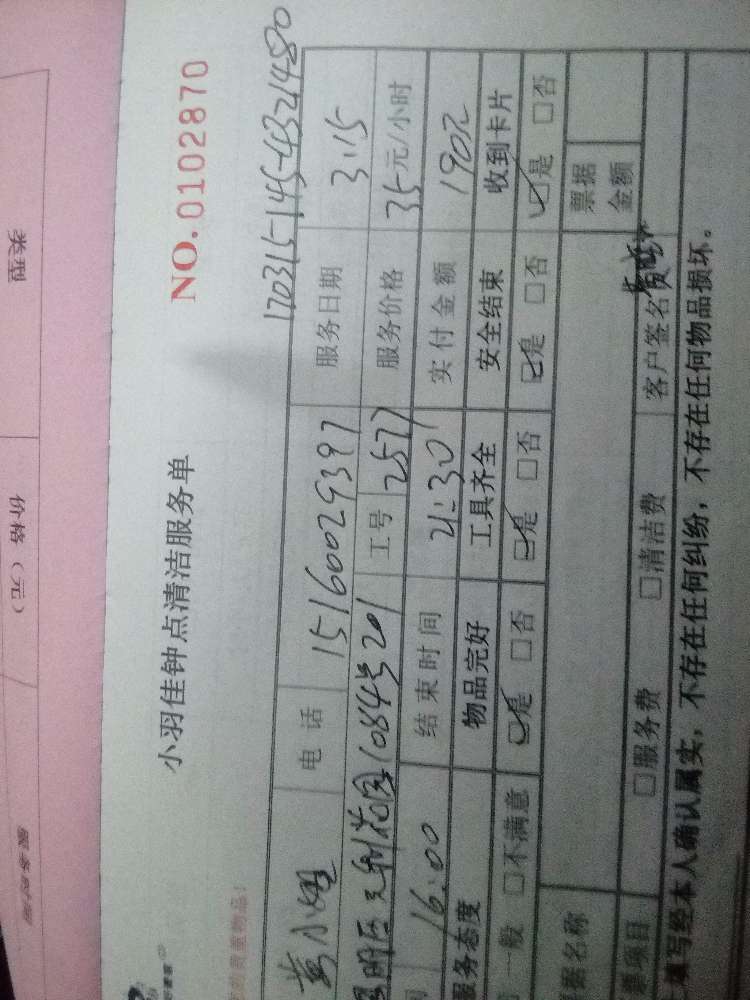 类型
价格（元）
服务时间
小羽佳钟点清洁服务单
NO.0102870
170315-145-4321480
黄小姐 电话 15160029397 服务日期 3.15
1084号201 工号 2577 服务价格 35元/小时
16:00 结束时间 21:30 实付金额 190元
服务态度 物品完好 工具齐全 安全结束 收到卡片
一般 □不满意 ☑是 □否 ☑是 □否 ☑是 □否 ☑是 □否
据名称 票据金额
票项目 □服务费 □清洁费 客户签名
填写经本人确认属实，不存在任何纠纷，不存在任何物品损坏。